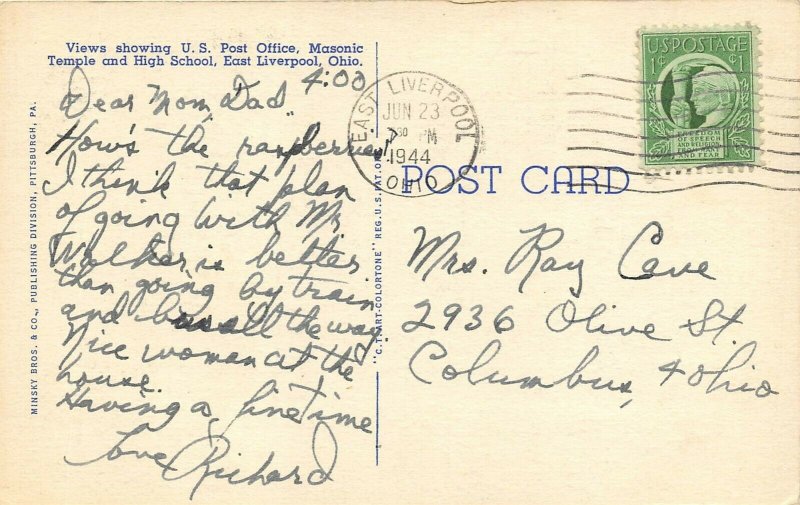 Views showing U.S. Post Office, Masonic
Temple and High School, East Liverpool, Ohio.
4:00
Dear Mom, Dad
How's the raspberries
I think that plan
of going with Mr.
Walker is better
than going by train
and bus all the way.
Nice woman at the
house.
Having a fine time
Love Richard
MINSKY BROS. & CO., PUBLISHING DIVISION, PITTSBURGH, PA.
"C.T. ART-COLORTONE" REG. U.S. PAT. OFF.
EAST LIVERPOOL
JUN 23
7 30 PM
1944
OHIO
US POSTAGE
1¢ 1¢
FREEDOM
OF SPEECH
AND RELIGION
FROM WANT
AND FEAR
POST CARD
Mrs. Ray Cave
2936 Olive St.
Columbus, 4 Ohio